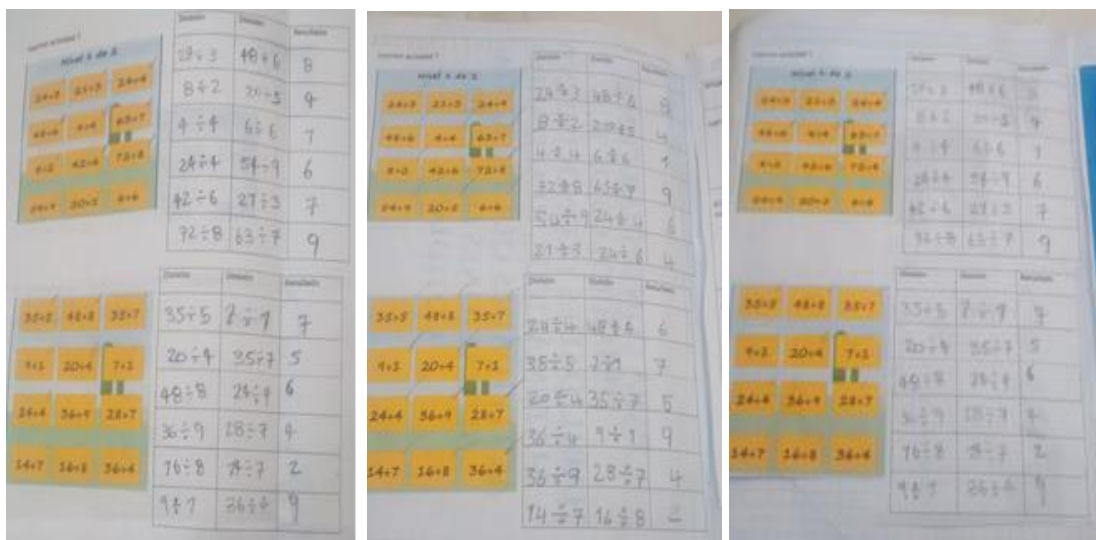 Nivel 1 de 2
24÷3 21÷3 24÷4
48÷6 4÷4 63÷7
8÷2 42÷6 72÷8
54÷9 20÷5 6÷6
División División Resultado
48÷6 8
8÷2 20÷5 4
4÷4 6÷6 1
24÷4 54÷9 6
42÷6 21÷3 7
72÷8 63÷7 9
35÷5 48÷8 35÷7
9÷1 20÷4 7÷1
24÷4 36÷9 28÷7
14÷7 16÷8 36÷4
División División Resultado
35÷5 7÷1 7
20÷4 35÷7 5
48÷8 24÷4 6
36÷9 28÷7 4
16÷8 14÷7 2
9÷1 36÷4 9
Nivel 1 de 2
24÷3 21÷3 24÷4
48÷6 4÷4 63÷7
8÷2 42÷6 72÷8
54÷9 20÷5 6÷6
División División Resultado
24÷3 48÷6 8
8÷2 20÷5 4
4÷4 6÷6 1
72÷8 63÷7 9
54÷9 24÷4 6
21÷3 24÷6 4
35÷5 48÷8 35÷7
9÷1 20÷4 7÷1
24÷4 36÷9 28÷7
14÷7 16÷8 36÷4
División División Resultado
24÷4 48÷8 6
35÷5 7÷1 7
20÷4 35÷7 5
36÷4 9÷1 9
36÷9 28÷7 4
14÷7 16÷8 2
Nivel 1 de 2
24÷3 21÷3 24÷4
48÷6 4÷4 63÷7
8÷2 42÷6 72÷8
54÷9 20÷5 6÷6
48÷6
8÷2 20÷5 4
4÷4 6÷6 1
24÷4 54÷9 6
42÷6 21÷3 7
72÷8 63÷7 9
35÷5 48÷8 35÷7
9÷1 20÷4 7÷1
24÷4 36÷9 28÷7
14÷7 16÷8 36÷4
35÷5 7÷1 7
20÷4 35÷7 5
48÷8 24÷4 6
36÷9 28÷7 4
16÷8 14÷7 2
9÷1 36÷4 9